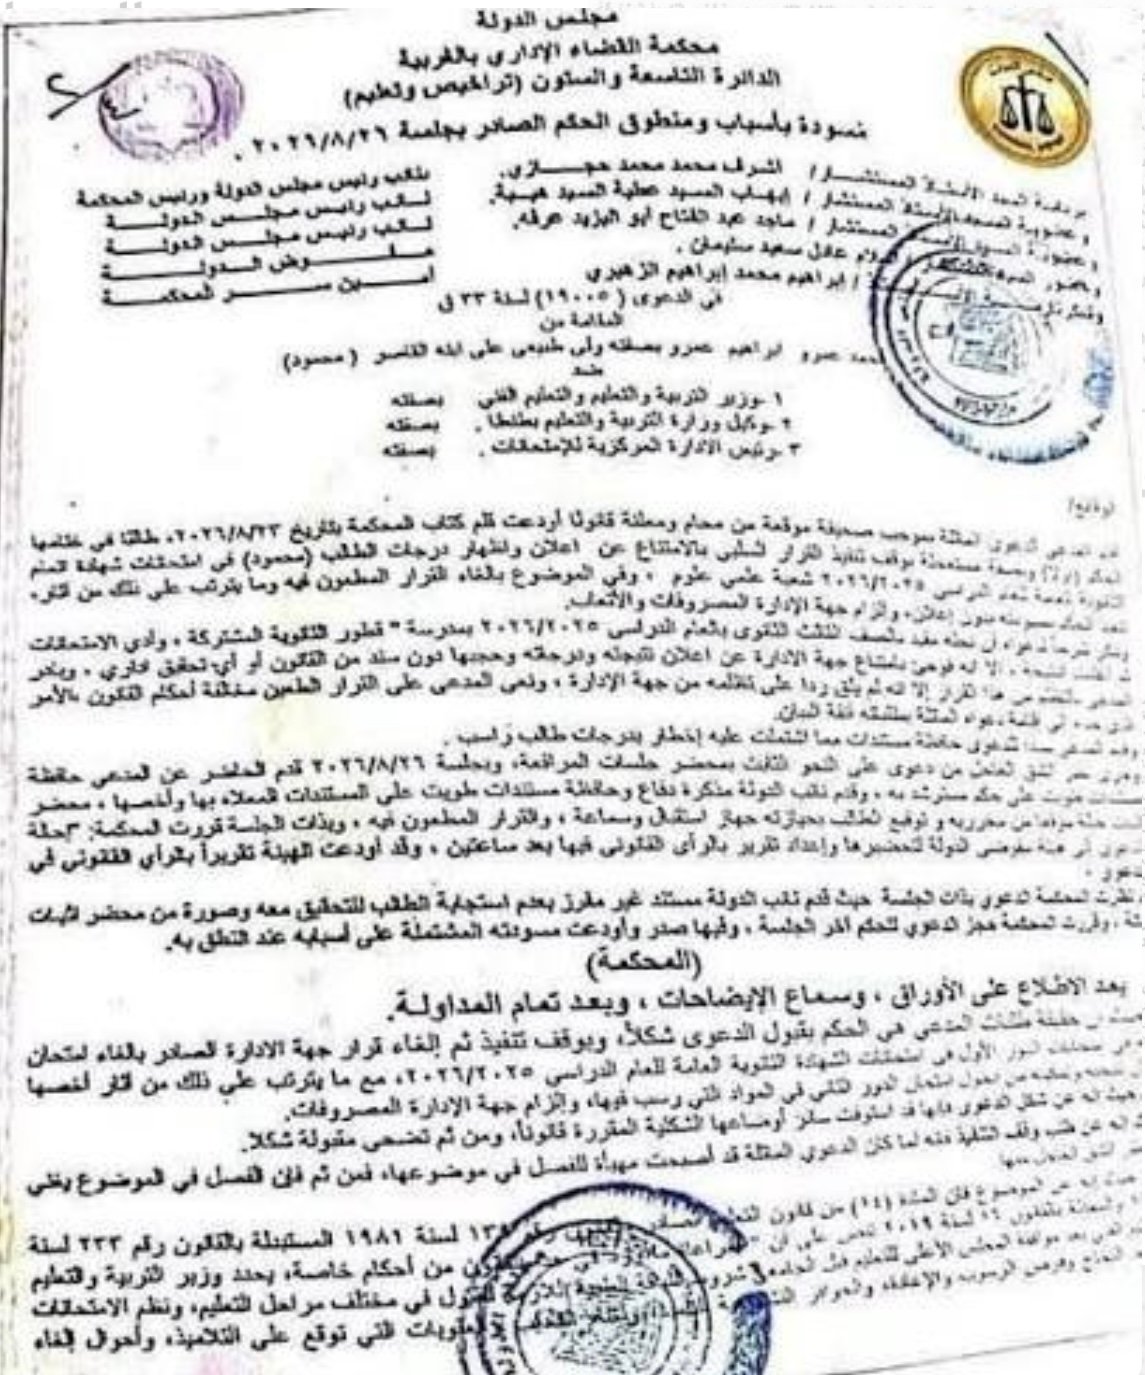 مجلس الدولة
محكمة القضاء الإداري بالغربية
الدائرة التاسعة والستون (تراخيص وتعليم)
مسودة بأسباب ومنطوق الحكم الصادر بجلسة ٢٠٢٦/٨/٢٦ .
السيد الأستاذ المستشار / اشرف محمد محمد حجازي. نائب رئيس مجلس الدولة ورئيس المحكمة
وعضوية السيد الأستاذ المستشار / إيهاب السيد عطية السيد هيبة. نائب رئيس مجلس الدولة
وعضوية السيد الأستاذ المستشار / ماجد عبد الفتاح ابو اليزيد عرفه. نائب رئيس مجلس الدولة
وحضور السيد الأستاذ المستشار / عادل سعيد سليمان . مفوض الدولة
/ إبراهيم محمد إبراهيم الزهيري أمين سر المحكمة
في الدعوى (١٩٠٠٥) لسنة ٣٣ ق
المقامة من
محمد عمرو ابراهيم عمرو بصفته ولى طبيعى على ابنه القاصر (محمود)
ضد
١-وزير التربية والتعليم والتعليم الفني بصفته
٢-وكيل وزارة التربية والتعليم بطنطا . بصفته
٣-رئيس الادارة المركزية للإمتحانات . بصفته
الوقائع/
المدعي الدعوى الماثلة بموجب صحيفة موقعة من محام ومعلنة قانونا أودعت قلم كتاب المحكمة بتاريخ ٢٠٢٦/٨/٢٣، طالبا في ختامها
الحكم (أولا) وبصفة مستعجلة بوقف تنفيذ القرار السلبي بالامتناع عن اعلان واظهار درجات الطالب (محمود) في امتحانات شهادة اتمام
الثانوية العامة للعام الدراسي ٢٠٢٦/٢٠٢٥ شعبة علمي علوم ، وفي الموضوع بالغاء القرار المطعون فيه وما يترتب علي ذلك من آثار،
الحكم بمسودته بدون إعلان، والزام جهة الإدارة المصروفات والأتعاب.
شرحا لدعواه أن نجله مقيد بالصف الثالث الثانوي بالعام الدراسي ٢٠٢٦/٢٠٢٥ بمدرسة " قطور الثانوية المشتركة ، وأدي الامتحانات
، الا انه فوجئ بامتناع جهة الادارة عن اعلان نتيجته ودرجاته وحجبها دون سند من القانون أو أي تحقيق اداري ، وبادر
المدعي بالتظلم من هذا القرار إلا انه لم يلق ردا على تظلمه من جهة الإدارة ، ونعى المدعى على القرار الطعين مخالفة أحكام القانون ،الأمر
الذي حدا به الى اقامة دعواه الماثلة بطلباته انفة البيان.
وقدم المدعي سندا للدعوى حافظة مستندات مما اشتملت عليه إخطار بدرجات طالب راسب .
الشق العاجل من دعوى على النحو الثابت بمحضر جلسات المرافعة، وبجلسة ٢٠٢٦/٨/٢٦ قدم الحاضر عن المدعي حافظة
مستندات حوت على حكم مسترشد به ، وقدم نائب الدولة مذكرة دفاع وحافظة مستندات طويت على المستندات المعلاه بها وأخصها ، محضر
وتوقيع الطالب بحيازته جهاز استقبال وسماعة ، والقرار المطعون فيه ، وبذات الجلسة قررت المحكمة: "إحالة
الدعوى الى هيئة مفوضى الدولة لتحضيرها وإعداد تقرير بالرأي القانوني فيها بعد ساعتين ، وقد أودعت الهيئة تقريراً بالرأي القانوني في
الدعوى .
نظرت المحكمة الدعوي بذات الجلسة حيث قدم نائب الدولة مستند غير مفرز بعدم استجابة الطالب للتحقيق معه وصورة من محضر اثبات
، وقررت المحكمة حجز الدعوي للحكم آخر الجلسة ، وفيها صدر وأودعت مسودته المشتملة على أسبابه عند النطق به.
(المحكمة)
بعد الاطلاع على الأوراق ، وسماع الإيضاحات ، وبعد تمام المداولة.
حقيقة طلبات المدعي هي الحكم بقبول الدعوى شكلاً، وبوقف تنفيذ ثم إلغاء قرار جهة الادارة الصادر بالغاء امتحان
امتحانات الدور الأول في امتحانات الشهادة الثانوية العامة للعام الدراسي ٢٠٢٦/٢٠٢٥، مع ما يترتب علي ذلك من آثار أخصها
من دخول امتحان الدور الثاني في المواد التي رسب فيها، وإلزام جهة الإدارة المصروفات.
وحيث انه عن شكل الدعوى فانها قد استوفت سائر أوضاعها الشكلية المقررة قانوناً، ومن ثم تضحى مقبولة شكلا.
انه عن طلب وقف التنفيذ فانه لما كان الدعوي الماثلة قد أصبحت مهيأة للفصل في موضوعها، فمن ثم فإن الفصل في الموضوع يغني
عن الشق العاجل منها
وحيث إنه عن الموضوع فإن المادة (١٤) من قانون التعليم الصادر لسنة ١٩٨١ المستبدلة بالقانون رقم ٢٣٣ لسنة
والمعدلة بالقانون ١٦ لسنة ٢٠١٩ تنص على أن " من أحكام خاصة، يحدد وزير التربية والتعليم
بعد موافقة المجلس الأعلى للتعليم قبل الجامعي شروط في مختلف مراحل التعليم، ونظم الامتحانات
النجاح وفرص الرسوب والإعادة، والعقوبات التي توقع علي التلاميذ، وأحوال إلغاء